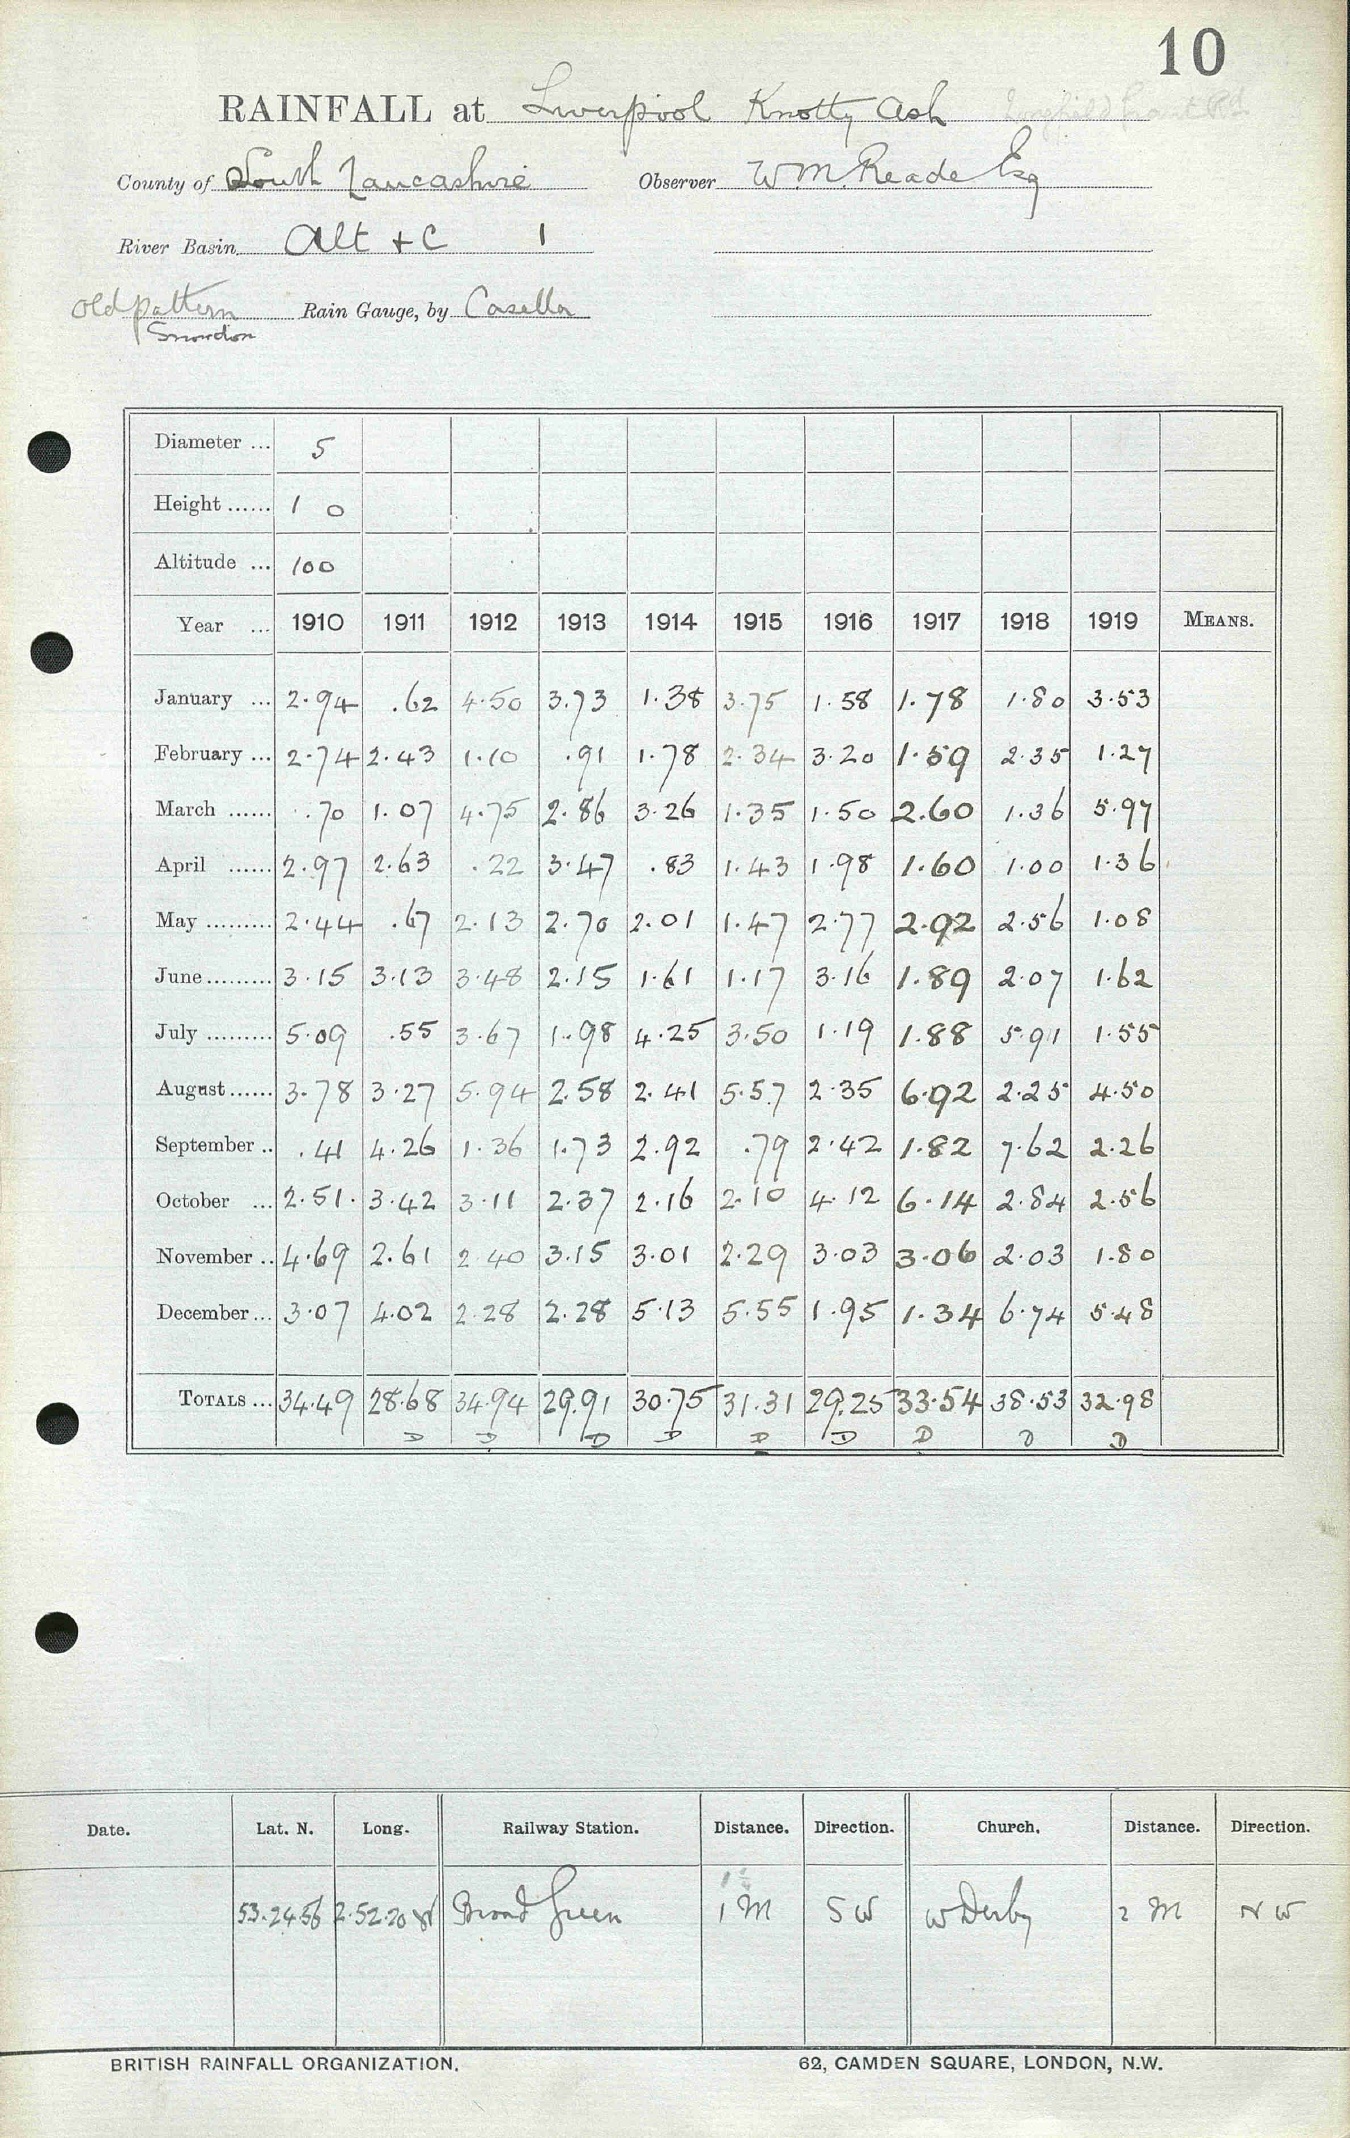 10
RAINFALL at Liverpool Knotty Ash
County of South Lancashire Observer W M. Reade Esq
River Basin Alt + C 1
Old pattern Rain Gauge, by Casella
Snowdon
Diameter ... 5
Height ...... 1 0
Altitude ... 100
Year ... 1910 1911 1912 1913 1914 1915 1916 1917 1918 1919 MEANS.
January ... 2.94 .62 4.50 3.73 1.38 3.75 1.58 1.78 1.80 3.53
February ... 2.74 2.43 1.10 .91 1.78 2.34 3.20 1.59 2.35 1.27
March ...... .70 1.07 4.75 2.86 3.26 1.35 1.50 2.60 1.36 5.97
April ...... 2.97 2.63 .22 3.47 .83 1.43 1.98 1.60 1.00 1.36
May ......... 2.44 .67 2.13 2.70 2.01 1.47 2.77 2.92 2.56 1.08
June ......... 3.15 3.13 3.48 2.15 1.61 1.17 3.16 1.89 2.07 1.62
July ......... 5.09 .55 3.67 1.98 4.25 3.50 1.19 1.88 5.91 1.55
August ...... 3.78 3.27 5.94 2.58 2.41 5.57 2.35 6.92 2.25 4.50
September .. .41 4.26 1.36 1.73 2.92 .79 2.42 1.82 7.62 2.26
October ... 2.51. 3.42 3.11 2.37 2.16 2.10 4.12 6.14 2.84 2.56
November .. 4.69 2.61 2.40 3.15 3.01 2.29 3.03 3.06 2.03 1.80
December ... 3.07 4.02 2.28 2.28 5.13 5.55 1.95 1.34 6.74 5.48
TOTALS ... 34.49 28.68 34.94 29.91 30.75 31.31 29.25 33.54 38.53 32.98
D D D D D D D D D
Date. Lat. N. Long. Railway Station. Distance. Direction. Church. Distance. Direction.
53.24.56 2.52.20 W Broad Green 1 M S W W Derby 2 M N W
BRITISH RAINFALL ORGANIZATION. 62, CAMDEN SQUARE, LONDON, N.W.